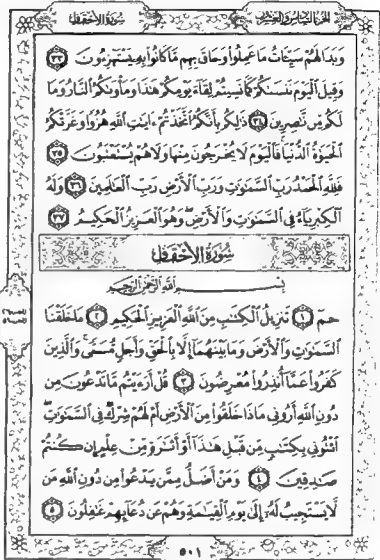 الجزء السادس والعشرون سورة الأحقاف
وَبَدَا لَهُمْ سَيِّـَٔاتُ مَا عَمِلُوا۟ وَحَاقَ بِهِم مَّا كَانُوا۟ بِهِۦ يَسْتَهْزِءُونَ ٣٣
وَقِيلَ ٱلْيَوْمَ نَنسَىٰكُمْ كَمَا نَسِيتُمْ لِقَآءَ يَوْمِكُمْ هَٰذَا وَمَأْوَىٰكُمُ ٱلنَّارُ وَمَا
لَكُم مِّن نَّٰصِرِينَ ٣٤ ذَٰلِكُم بِأَنَّكُمُ ٱتَّخَذْتُمْ ءَايَٰتِ ٱللَّهِ هُزُوًا وَغَرَّتْكُمُ
ٱلْحَيَوٰةُ ٱلدُّنْيَا فَٱلْيَوْمَ لَا يُخْرَجُونَ مِنْهَا وَلَا هُمْ يُسْتَعْتَبُونَ ٣٥
فَلِلَّهِ ٱلْحَمْدُ رَبِّ ٱلسَّمَٰوَٰتِ وَرَبِّ ٱلْأَرْضِ رَبِّ ٱلْعَٰلَمِينَ ٣٦ وَلَهُ
ٱلْكِبْرِيَآءُ فِى ٱلسَّمَٰوَٰتِ وَٱلْأَرْضِ وَهُوَ ٱلْعَزِيزُ ٱلْحَكِيمُ ٣٧
سُورَةُ الأَحْقَافِ
بِسْمِ ٱللَّهِ ٱلرَّحْمَٰنِ ٱلرَّحِيمِ
حمٓ ١ تَنزِيلُ ٱلْكِتَٰبِ مِنَ ٱللَّهِ ٱلْعَزِيزِ ٱلْحَكِيمِ ٢ مَا خَلَقْنَا
ٱلسَّمَٰوَٰتِ وَٱلْأَرْضَ وَمَا بَيْنَهُمَآ إِلَّا بِٱلْحَقِّ وَأَجَلٍ مُّسَمًّى وَٱلَّذِينَ
كَفَرُوا۟ عَمَّآ أُنذِرُوا۟ مُعْرِضُونَ ٣ قُلْ أَرَءَيْتُم مَّا تَدْعُونَ مِن
دُونِ ٱللَّهِ أَرُونِى مَاذَا خَلَقُوا۟ مِنَ ٱلْأَرْضِ أَمْ لَهُمْ شِرْكٌ فِى ٱلسَّمَٰوَٰتِ
ٱئْتُونِى بِكِتَٰبٍ مِّن قَبْلِ هَٰذَآ أَوْ أَثَٰرَةٍ مِّنْ عِلْمٍ إِن كُنتُمْ
صَٰدِقِينَ ٤ وَمَنْ أَضَلُّ مِمَّن يَدْعُوا۟ مِن دُونِ ٱللَّهِ مَن
لَّا يَسْتَجِيبُ لَهُۥٓ إِلَىٰ يَوْمِ ٱلْقِيَٰمَةِ وَهُمْ عَن دُعَآئِهِمْ غَٰفِلُونَ ٥
٥٠١